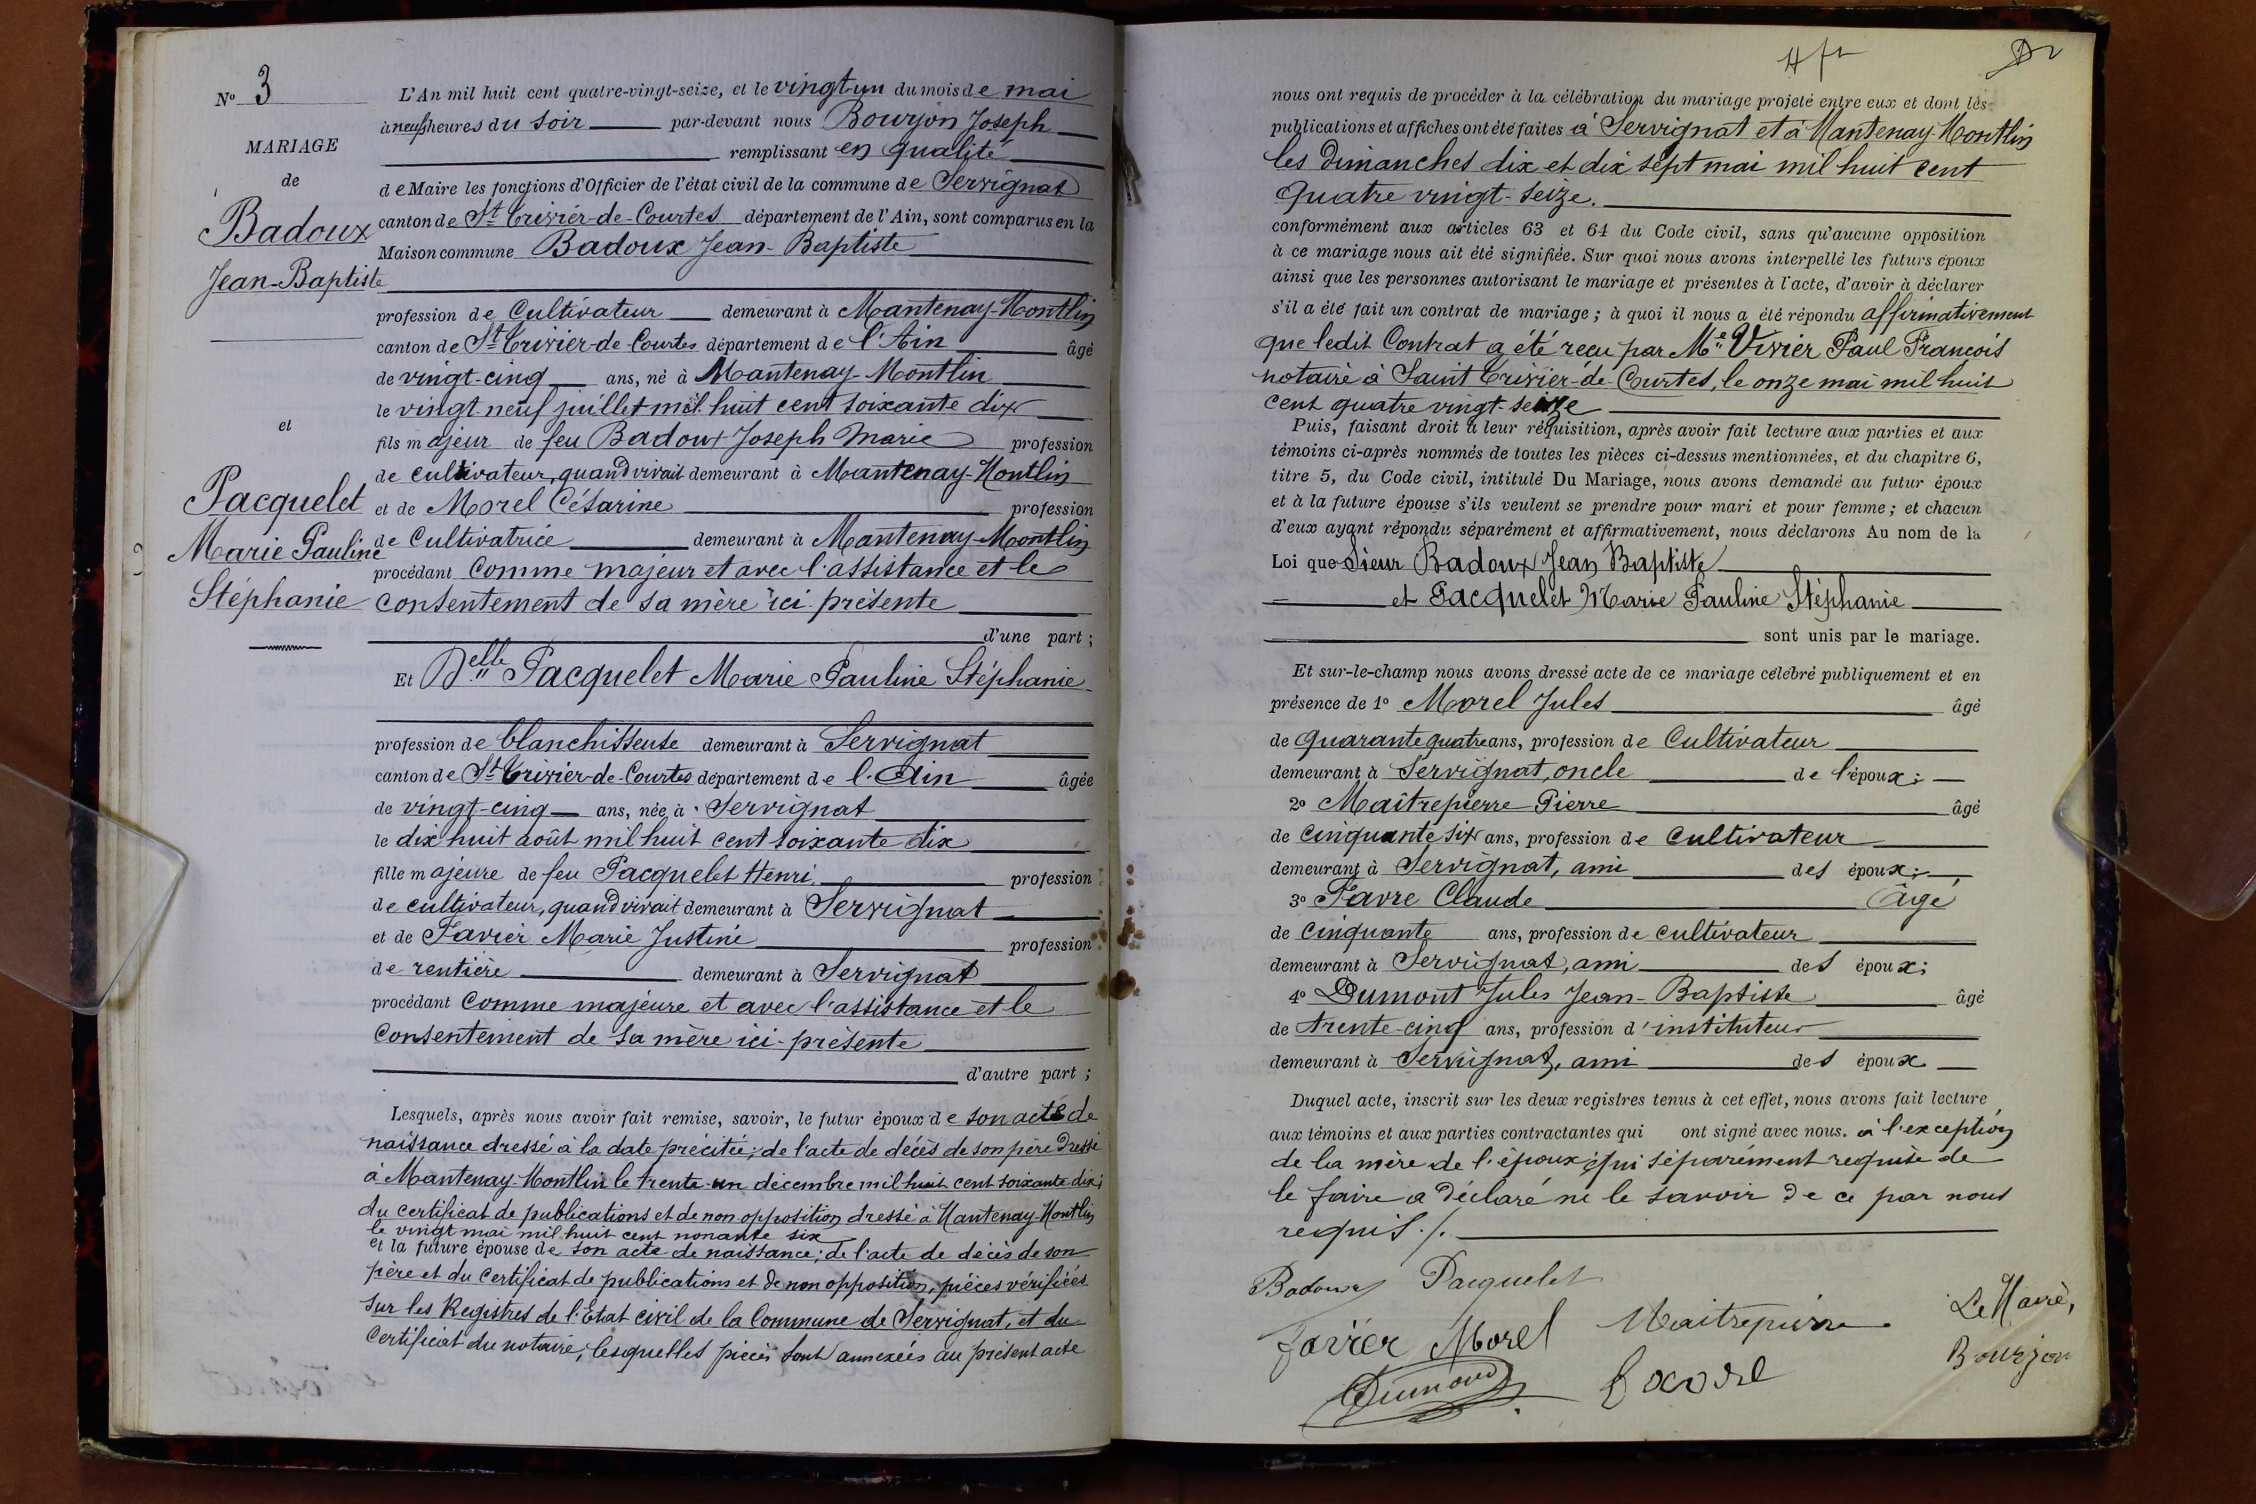 N° 3
MARIAGE
de
Badoux
Jean-Baptiste
et
Pacquelet
Marie Pauline
Stéphanie
L'An mil huit cent quatre-vingt-seize, et le vingt-un du mois de mai
à neuf heures du soir par-devant nous Bourjon Joseph
remplissant en qualité
de Maire les fonctions d'Officier de l'état civil de la commune de Servignat
canton de St Trivier-de-Courtes département de l'Ain, sont comparus en la
Maison commune Badoux Jean-Baptiste
profession de Cultivateur demeurant à Mantenay-Montlin
canton de St Trivier-de-Courtes département de l'Ain âgé
de vingt-cinq ans, né à Mantenay-Montlin
le vingt neuf juillet mil huit cent soixante dix
fils majeur de feu Badoux Joseph Marie profession
de cultivateur, quand vivait demeurant à Mantenay-Montlin
et de Morel Césarine profession
de Cultivatrice demeurant à Mantenay-Montlin
procédant comme majeur et avec l'assistance et le
consentement de sa mère ici présente
d'une part ;
Et Delle Pacquelet Marie Pauline Stéphanie
profession de blanchisseuse demeurant à Servignat
canton de St Trivier-de-Courtes département de l'Ain âgée
de vingt-cinq ans, née à Servignat
le dix huit août mil huit cent soixante dix
fille majeure de feu Pacquelet Henri profession
de cultivateur, quand vivait demeurant à Servignat
et de Favier Marie Justine profession
de rentière demeurant à Servignat
procédant comme majeure et avec l'assistance et le
consentement de sa mère ici-présente
d'autre part ;
Lesquels, après nous avoir fait remise, savoir, le futur époux de son acte de
naissance dressé à la date précitée; de l'acte de décès de son père dressé
à Mantenay-Montlin le trente-un décembre mil huit cent soixante dix;
du certificat de publications et de non opposition dressé à Mantenay-Montlin
le vingt mai mil huit cent nonante six
et la future épouse de son acte de naissance; de l'acte de décès de son
père et du certificat de publications et de non opposition, pièces vérifiées
sur les Registres de l'Etat civil de la Commune de Servignat, et du
certificat du notaire; lesquelles pièces sont annexées au présent acte
nous ont requis de procéder à la célébration du mariage projeté entre eux et dont les
publications et affiches ont été faites à Servignat et à Mantenay-Montlin
les dimanches dix et dix sept mai mil huit cent
quatre vingt-seize.
conformément aux articles 63 et 64 du Code civil, sans qu'aucune opposition
à ce mariage nous ait été signifiée. Sur quoi nous avons interpellé les futurs époux
ainsi que les personnes autorisant le mariage et présentes à l'acte, d'avoir à déclarer
s'il a été fait un contrat de mariage ; à quoi il nous a été répondu affirmativement
que ledit Contrat a été reçu par Me Vivier Paul François
notaire à Saint Trivier-de-Courtes, le onze mai mil huit
cent quatre vingt-seize
Puis, faisant droit à leur réquisition, après avoir fait lecture aux parties et aux
témoins ci-après nommés de toutes les pièces ci-dessus mentionnées, et du chapitre 6,
titre 5, du Code civil, intitulé Du Mariage, nous avons demandé au futur époux
et à la future épouse s'ils veulent se prendre pour mari et pour femme ; et chacun
d'eux ayant répondu séparément et affirmativement, nous déclarons Au nom de la
Loi que Sieur Badoux Jean Baptiste
et Pacquelet Marie Pauline Stéphanie
sont unis par le mariage.
Et sur-le-champ nous avons dressé acte de ce mariage célébré publiquement et en
présence de 1° Morel Jules âgé
de quarante quatre ans, profession de Cultivateur
demeurant à Servignat, oncle de l'époux;
2° Maîtrepierre Pierre âgé
de cinquante six ans, profession de cultivateur
demeurant à Servignat, ami des époux;
3° Favre Claude âgé
de cinquante ans, profession de cultivateur
demeurant à Servignat, ami des époux;
4° Dumont Jules Jean-Baptiste âgé
de trente-cinq ans, profession d'instituteur
demeurant à Servignat, ami des époux
Duquel acte, inscrit sur les deux registres tenus à cet effet, nous avons fait lecture
aux témoins et aux parties contractantes qui ont signé avec nous. à l'exception
de la mère de l'époux qui séparément requise de
le faire a déclaré ne le savoir de ce par nous
requis ./.
Badoux Pacquelet
Le Maire,
favier Morel Maitrepierre
Bourjon
Dumont